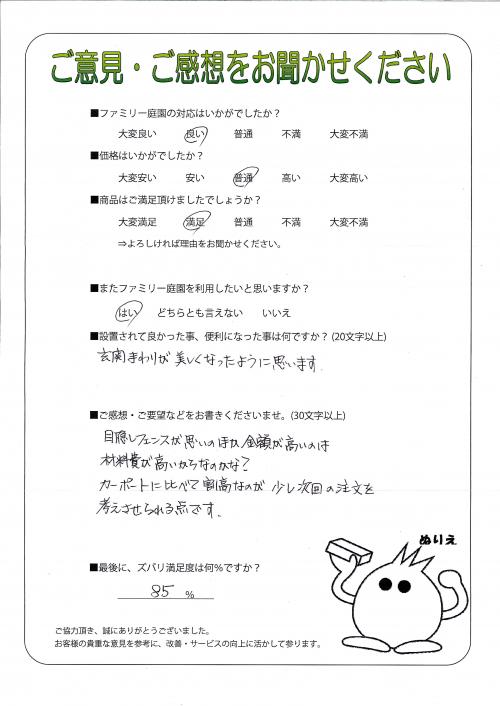 ご意見・ご感想をお聞かせください
■ファミリー庭園の対応はいかがでしたか？
大変良い 良い 普通 不満 大変不満
■価格はいかがでしたか？
大変安い 安い 普通 高い 大変高い
■商品はご満足頂けましたでしょうか？
大変満足 満足 普通 不満 大変不満
⇒よろしければ理由をお聞かせください。
■またファミリー庭園を利用したいと思いますか？
はい どちらとも言えない いいえ
■設置されて良かった事、便利になった事は何ですか？(20文字以上)
玄関まわりが美しくなったように思います.
■ご感想・ご要望などをお書きくださいませ。(30文字以上)
目隠しフェンスが思いのほか金額が高いのは
材料費が高いからなのかな?
カーポートに比べて割高なのが少し次回の注文を
考えさせられる点です.
ぬりえ
■最後に、ズバリ満足度は何％ですか？
85 %
ご協力頂き、誠にありがとうございました。
お客様の貴重な意見を参考に、改善・サービスの向上に活かして参ります。